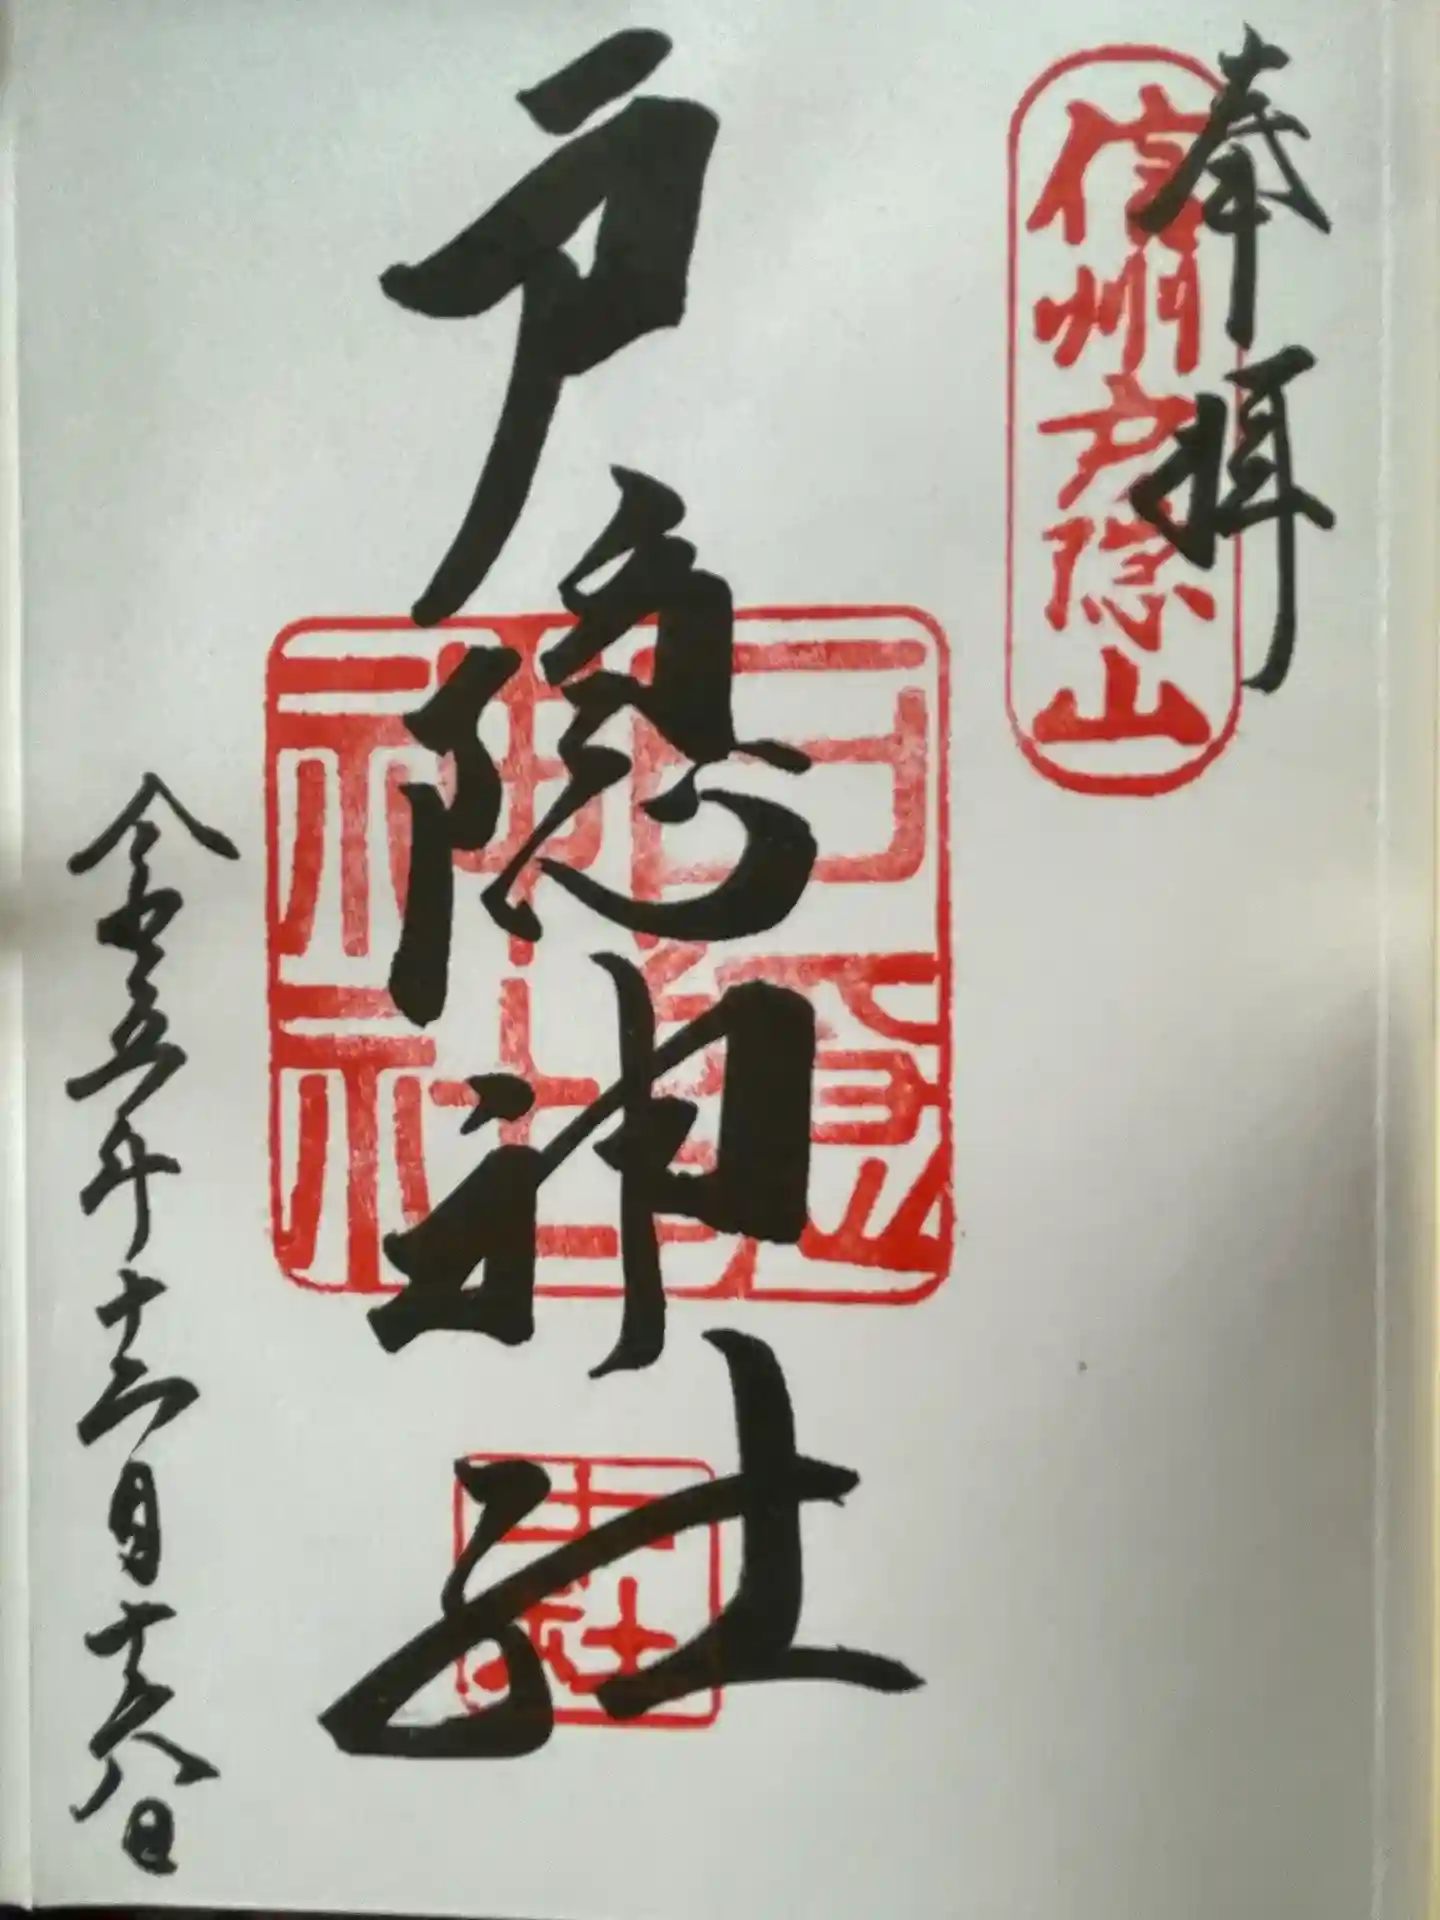 奉拝
信州戸隠山
戸隠神社
戸隠神社
中社
令和五年十二月十六日